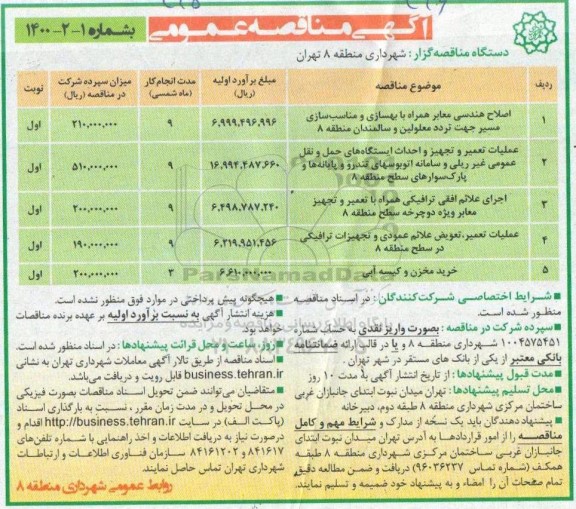 آگهی مناقصه عمومی
بشماره ۱-۲-۱۴۰۰
دستگاه مناقصه‌گزار: شهرداری منطقه ۸ تهران
ردیف موضوع مناقصه مبلغ برآورد اولیه (ریال) مدت انجام کار (ماه شمسی) میزان سپرده شرکت در مناقصه (ریال) نوبت
۱ اصلاح هندسی معابر همراه با بهسازی و مناسب‌سازی مسیر جهت تردد معلولین و سالمندان منطقه ۸ ۶,۹۹۹,۴۹۶,۹۹۶ ۹ ۲۱۰,۰۰۰,۰۰۰ اول
۲ عملیات تعمیر و تجهیز و احداث ایستگاه‌های حمل و نقل عمومی غیر ریلی و سامانه اتوبوسهای تندرو و پایانه‌ها و پارک‌سوارهای سطح منطقه ۸ ۱۶,۹۹۴,۴۸۷,۶۶۰ ۹ ۵۱۰,۰۰۰,۰۰۰ اول
۳ اجرای علائم افقی ترافیکی همراه با تعمیر و تجهیز معابر ویژه دوچرخه سطح منطقه ۸ ۶,۴۹۸,۷۸۷,۲۴۰ ۹ ۲۰۰,۰۰۰,۰۰۰ اول
۴ عملیات تعمیر،تعویض علائم عمودی و تجهیزات ترافیکی در سطح منطقه ۸ ۶,۳۱۹,۹۵۱,۴۵۶ ۹ ۱۹۰,۰۰۰,۰۰۰ اول
۵ خرید مخزن و کیسه آبی ۶,۶۱۰,۲۰۰,۰۰۰ ۳ ۲۰۰,۰۰۰,۰۰۰ اول
شرایط اختصاصی شرکت‌کنندگان: در اسناد مناقصه
منظور شده است.
سپرده شرکت در مناقصه: بصورت واریز نقدی به حساب سپرده
۱۰۰۴۵۷۵۴۵۱ شهرداری منطقه ۸ و یا در قالب ارائه ضمانتنامه
بانکی معتبر از یکی از بانک های مستقر در شهر تهران.
مدت قبول پیشنهادها: از تاریخ انتشار آگهی به مدت ۱۰ روز
محل تسلیم پیشنهادها: تهران میدان نبوت ابتدای جانبازان غربی
ساختمان مرکزی شهرداری منطقه ۸ طبقه دوم، دبیرخانه
پیشنهاددهندگان باید یک نسخه از مدارک و شرایط مهم و کامل
مناقصه را از امور قراردادها به آدرس تهران میدان نبوت ابتدای
جانبازان غربی ساختمان مرکزی شهرداری منطقه ۸ طبقه
همکف (شماره تماس ۹۶۰۳۶۲۳۷) دریافت و ضمن مطالعه دقیق
تمام صفحات آن را امضاء و به پیشنهاد خود ضمیمه و تسلیم نمایند.
هیچگونه پیش پرداختی در موارد فوق منظور نشده است.
هزینه انتشار آگهی به نسبت برآورد اولیه بر عهده برنده مناقصات
خواهد بود.
روز، ساعت و محل قرائت پیشنهادها: در اسناد منظور شده است.
اسناد مناقصه از طریق تالار آگهی معاملات شهرداری تهران به نشانی
business.tehran.ir قابل رویت و دریافت می‌باشد.
متقاضیان می‌توانند ضمن تحویل اسناد مناقصات بصورت فیزیکی
در محل تحویل و در مدت زمان مقرر ، نسبت به بارگذاری اسناد
(پاکت الف) در سایت http://business.tehran.ir اقدام و
درصورت نیاز به دریافت اطلاعات و اخذ راهنمایی با شماره تلفن‌های
۸۴۱۶۱۷ و ۸۴۱۶۱۲۰۲ سازمان فناوری اطلاعات و ارتباطات
شهرداری تهران تماس حاصل نمایند.
روابط عمومی شهرداری منطقه ۸